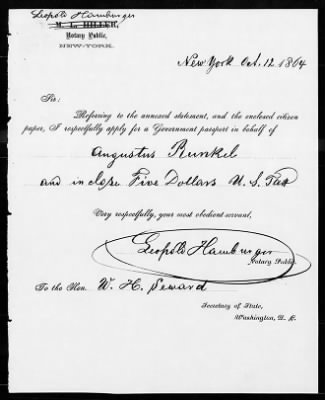 Leopold Hamburger
M. L. HILLER,
Notary Public,
NEW-YORK.
New York Oct. 12 1864
Sir:
Referring to the annexed statement, and the enclosed citizen
paper, I respectfully apply for a Government passport in behalf of
Augustus Runkel
and inclose Five Dollars U. S. Tax
Very respectfully, your most obedient servant,
Leopold Hamburger
Notary Public.
To the Hon. W. H. Seward
Secretary of State,
Washington, D. C.